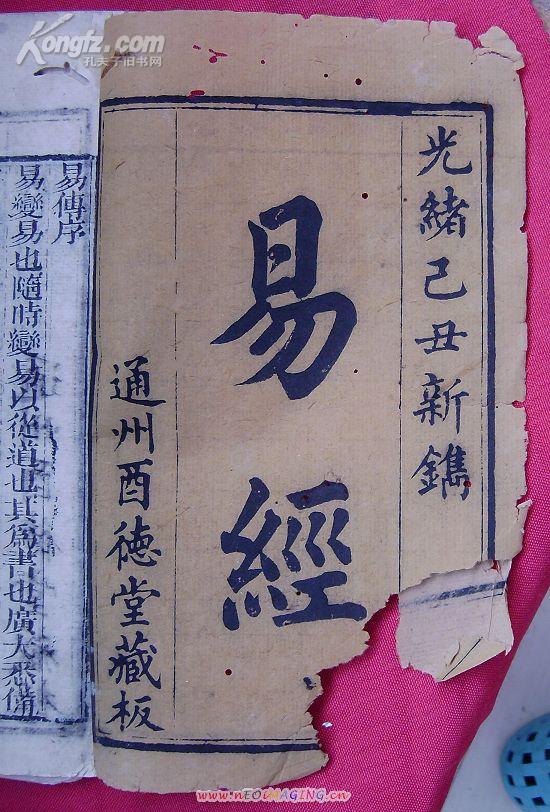 Kongfz.com
孔夫子旧书网
光緒己丑新鐫
易經
通州酉德堂藏板
易傳序
易變易也隨時變易以從道也其爲書也廣大悉備
www.nEOiMAGING.cn